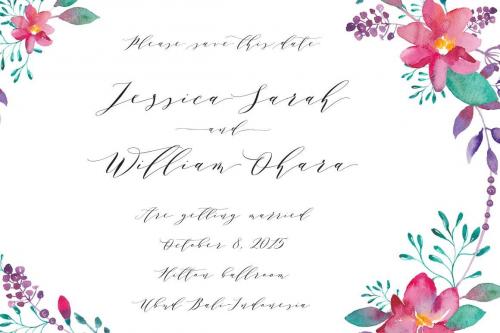 Please save this date
Jessica Sarah
and
William Ohara
Are getting married
October 8, 2015
Hilton ballroom
Ubud Bali-Indonesia